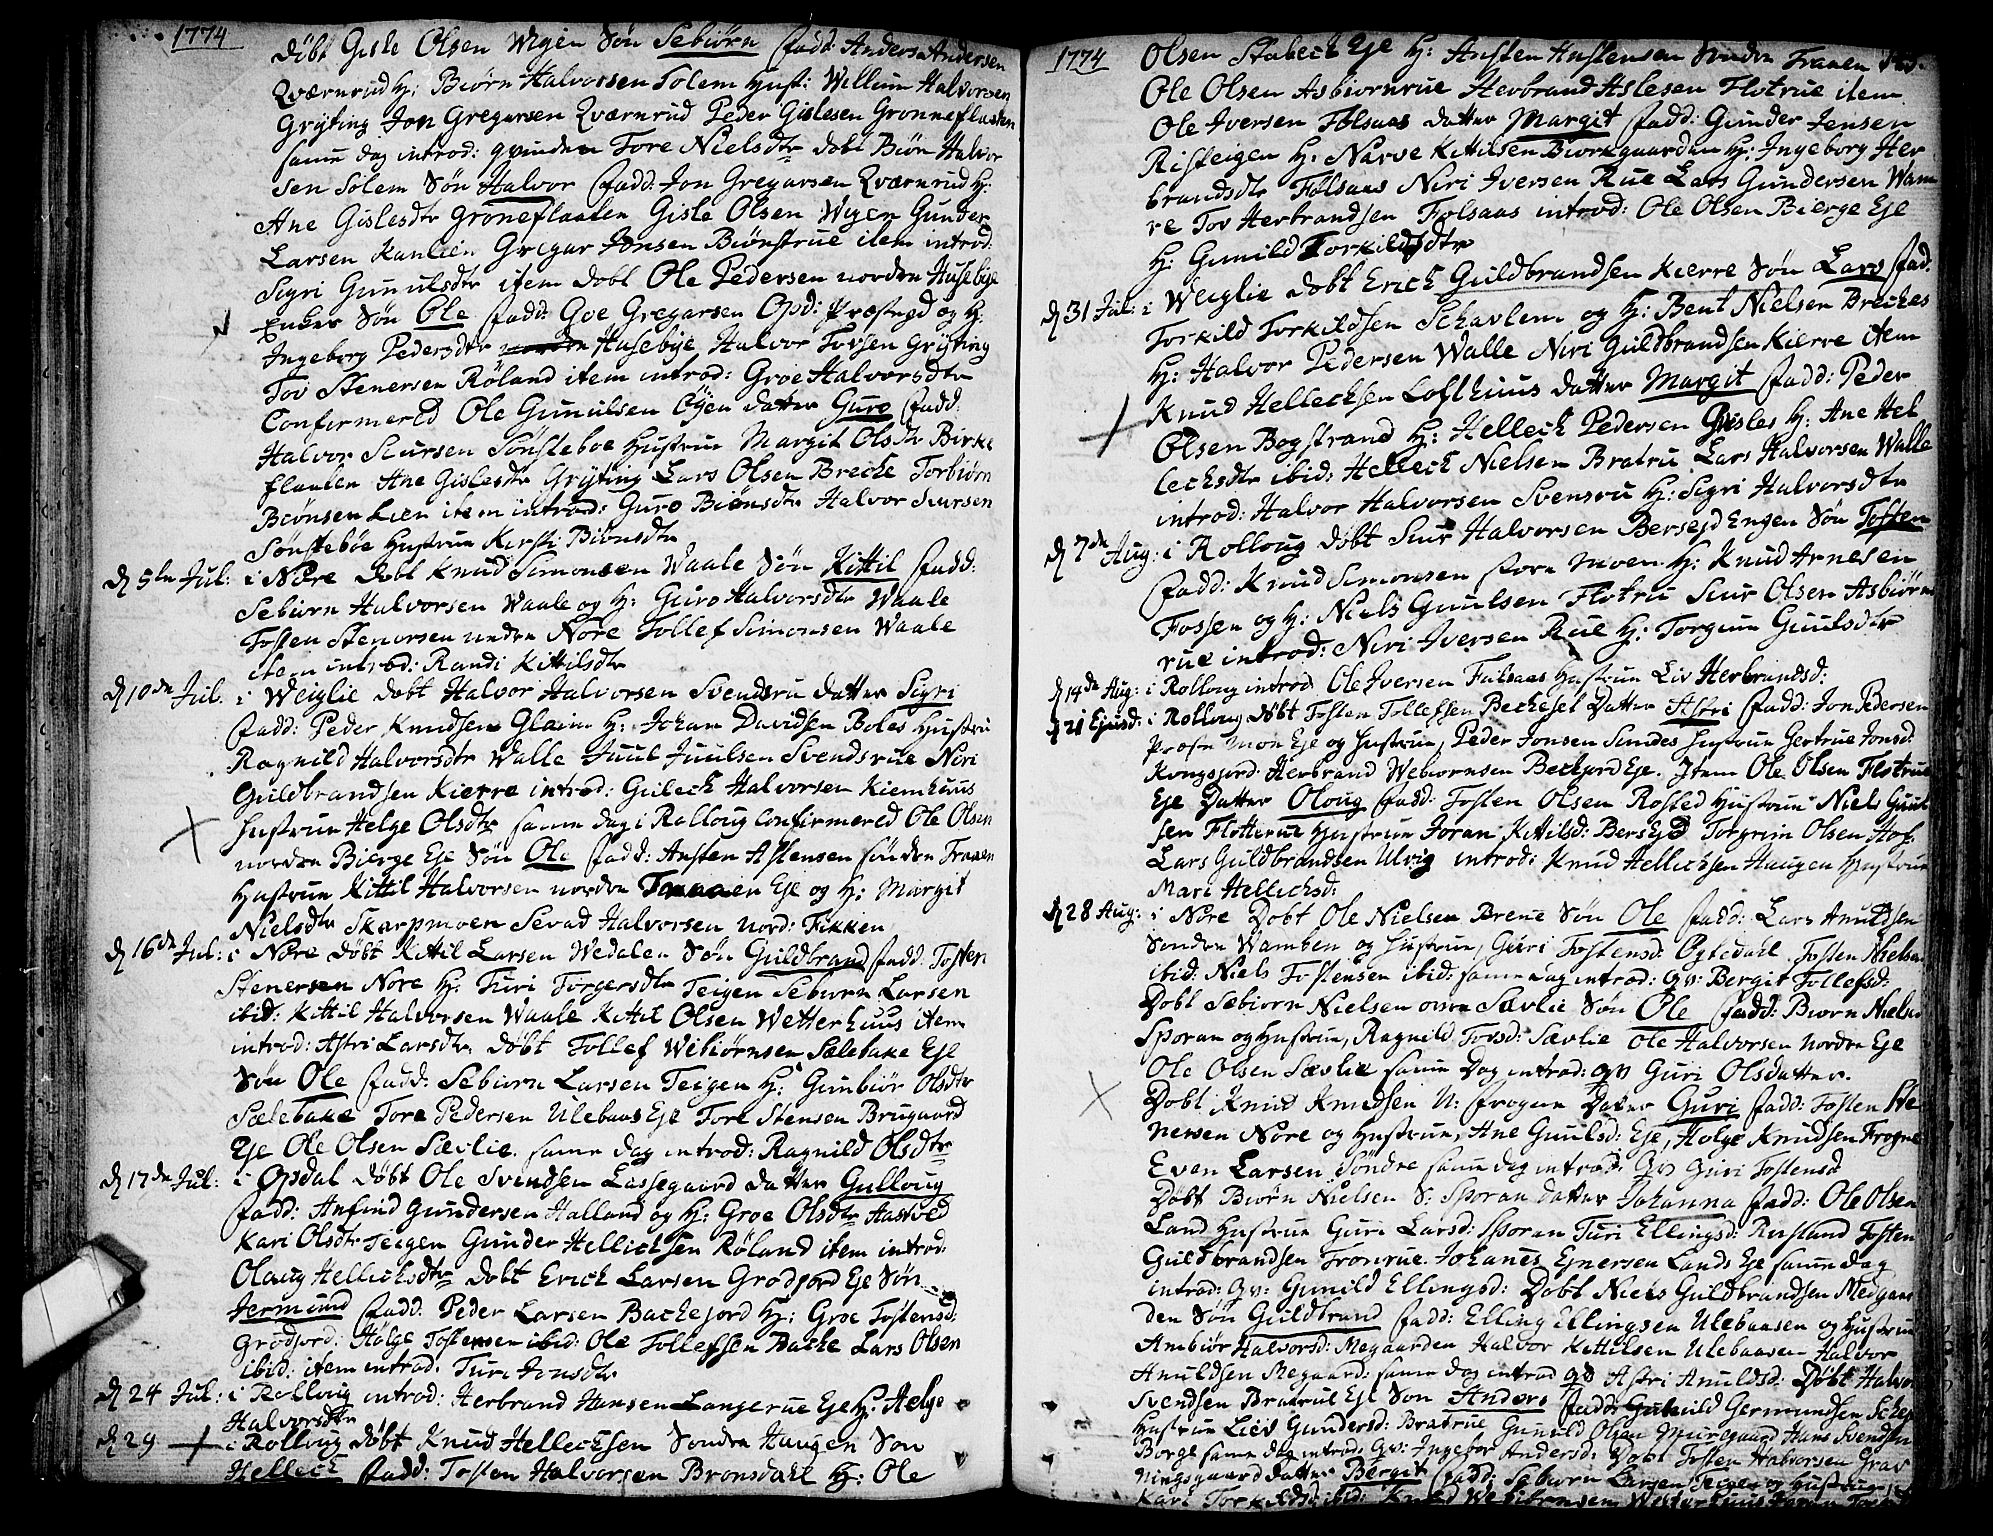 1774
døbt Gisle Olsen Wigen Søn Sebiørn fadd: Anders Andersen
Qværnrud H: Biørn Halvorsen Solem Hust: Willum Halvorsen
Gryting Jon Gregarsen Qværnrud Peder Gislesen Grønneflaaten
samme dag introd: qvinden Tore Nielsdtr døbt Biørn Halvor
sen Solem Søn Halvor fadd: Jon Gregarsen Qværnrud H:
Ane Gislesdtr Grøneflaaten Gisle Olsen Wigen Gunder
Larsen Gregar Jonsen Biønstrue item introd:
Sigri Gunulsdtr item døbt Ole Pedersen nordre Husebye
Søn Ole fadd: Goe Gregarsen Opd: Præstegd og H:
Ingeborg Pedersdtr Husebye Halvor Tovsen Gryting
Tov Stenersen Røland item introd: Groe Halvorsdtr
Confirmered Ole Gunulsen Øyen datter Guro fadd:
Halvor Siursen Sønsteboe Hustrue Margit Olsdtr Birke
flaaten Ane Gislesdtr Gryting Lars Olsen Brecke Torbiørn
Biønsen Lien item introd: Guro Biønsdtr Halvor Siursen
Sønstebøe Hustrue Kirsti Biønsdtr
d 5te Jul: i Nore døbt Knud Simonsen Waale Søn Kittil fadd:
Sebiørn Halvorsen Waale og H: Guro Halvorsdtr Waale
Tosten Stenersen nedre Nore Tollef Simonsen Waale
item introd: Randi Kittilsdtr
d 10de Jul. i Weiglie døbt Halvor Halvorsen Svendsru datter Sigri
fadd: Peder Knudsen Glaim H: Johan Davidsen Boles Hustru
Ragnild Halvorsdtr Walle Juul Juulsen Svendsrue Niri
Guldbrandsen Kierre introd: Guleck Halvorsen Kiemhuus
hustrue Helge Olsdtr samme dag i Rolloug Confirmered Ole Olsen
nordre Bierge Eje Søn Ole fadd: Ansten Astensen søndre Traaen
Hustrue Kittil Halvorsen nordre Traaen Eje og H: Margit
Nielsdtr Skarpmoen Sevad Halvorsen nord: Fikken
d 16de Jul: i Nore døbt Kittil Larsen Wedalen Søn Guldbrand fadd: Tosten
Stenersen Nore H: Turi Torgersdtr Teigen Sebiørn Larsen
ibid: Kittil Halvorsen Waale Kittil Olsen Wetterhuus item
introd: Astri Larsdtr. døbt Tollef Wibiørnsen Sæletake Eje
Søn Ole fadd: Sebiørn Larsen Teigen H: Gunbiør Olsdtr
Sæletake Tore Pedersen Ulebaas Eje Tore Stensen Brugaard
Eje Ole Olsen Sævlie. samme dag introd: Ragnild Olsdtr
d 17de Jul: i Opdal døbt Ole Svendsen Lassegaard datter Gulloug
fadd: Anfind Gundersen Halland og H: Groe Olsdtr Aasvold
Kari Olsdtr Teigen Gunder Hellichsen Røland item introd:
Olaug Hellichsdtr døbt Erich Larsen Grodjord Eje Søn
Jermund fadd: Peder Larsen Backejord H: Groe Tostensd:
Grodjord: Holge Tostensen ibid: Ole Tollefsen Backe Lars Olsen
ibid: item introd: Turi Jonsdtr
d 24 Jul: i Rolloug introd: Herbrand Hansen Langerue Eje H: Helge
Halvorsdtr
d 29 i Rolloug døbt Knud Hellecksen Søndre Haugen Søn
Helleck fadd: Tosten Halvorsen Brønsdahl H: Ole
1774
Olsen Stabeck Eje H: Ansten Anstensen Søndre Traaen
Ole Olsen Asbiornrue Herbrand Aslesen Flotrue item
Ole Iversen Følsaas datter Margit fadd: Gunder Jensen
Risteigen H: Narve Kittilsen Biørkgaarden H: Ingeborg Her
brandsdtr Følsaas Niri Iversen Rue Lars Gundersen Wam
re Tov Herbrandsen Følsaas introd: Ole Olsen Bierge Eje
H: Gunild Torkildsdtr
d 31 Jul: i Weiglie døbt Erich Guldbrandsen Kierre Søn Lars fad.
Torkild Torkildsen Schavlem og H: Bent Nielsen Breckes
H: Halvor Pedersen Walle Niri Guldbrandsen Kierre item
Knud Hellecksen Lofthuus datter Margit fadd: Peder
Olsen Bogstrand H: Helleck Pedersen Gisles H: Ane Hel
lecksdtr ibid: Helleck Nielsen Bratru Lars Halvorsen Walle
introd: Halvor Halvorsen Svensru H: Sigri Halvorsdtr
d 7de Aug: i Rolloug døbt Siur Halvorsen Bersejd Engen Søn Tosten
fadd: Knud Simonsen store Moen H: Knud Arnesen
Fossen og H: Niels Guulsen Flotru Siur Olsen Asbiørn
rue introd: Niri Iversen Rue H: Torgun Guulsdtr
d 14de Aug: i Rolloug introd Ole Iversen Fulsaas Hustrue Liv Herbrandsd:
d 21 Ejusd: i Rolloug døbt Tosten Tollefsen Beckeset Datter Astri fadd: Jon Pedersen
Præste Moe Eje og hustrue, Peder Jonsen Sundes hustrue Gertrue Jonsd:
Kongsjord Herbrand Webiørnsen Beckjord Eje. Item Ole Olsen Flotrue
Eje Datter Oloug fadd: Tosten Olsen Rosted Hustrue Niels Guul
sen Flotterue Hustrue Joran Kittilsd: Bersejd Torgrim Olsen Hof.
Lars Guldbrandsen Ulvig introd: Knud Hellichsen Haugen Hustrue
Mari Hellichsd:
d 28 Aug: i Nore Døbt Ole Nielsen Brene Søn Ole fadd: Lars Anuldsen
Søndre Wamben og Hustrue, Guri Tostensd: Ogtedahl Tosten Nielsen
ibid: Niels Tostensen ibid: samme dag introd: qv: Bergit Tollefsd:
Døbt Sæbiørn Nielsen øvre Sævlie Søn Ole fadd: Biørn Nielsen
Sporan og Hustrue, Ragnild Tovsd: Sævlie Ole Halvorsen Nordre Eje
Ole Olsen Sævlie samme Dag introd: qv Guri Olsdatter.
Døbt Knud Knudsen N: Frogne Datter Guri fadd: Tosten Ste
nersen Nore og Hustrue, Ane Guulsd: Eje, Holge Knudsen Frogne
Even Larsen Søndre samme dag introd: Qv Guri Tostensd
Døbt Biørn Nielsen S: Sporan datter Johanna fadd: Ole Olsen
Land Hustrue Guri Larsd: Sporan Turi Ellingsd: Rusland Tosten
Guldbrandsen Fronrue Johanes Ejnersen Lands Eje samme dag
introd: qv: Gunild Ellingsd: Døbt Niels Guldbrandsen Medgaar
den Søn Guldbrand fadd: Elling Ellingsen Ulebaasen og Hustrue
Ambiør Halvorsd: Megaarden Halvor Kittilsen Ulebaasen Halvor
Anuldsen Megaard: samme dag introd qv Astri Anuldsd: Døbt Halvor
Svendsen Bratrue Eje Søn Anders fadd: Germundsen
Hustrue Liev Gundersd: Bratrue Gunuld Olsen Muregaard Hans Svendsen
Borge samme dag introd: qv: Ingebor Andersd: Døbt Tosten Halvorsen Grav
ningsgaard datter Bergit fadd: Sebiørn Larsen Teigen og Hustrue
Kari Torkildsd: ibid: